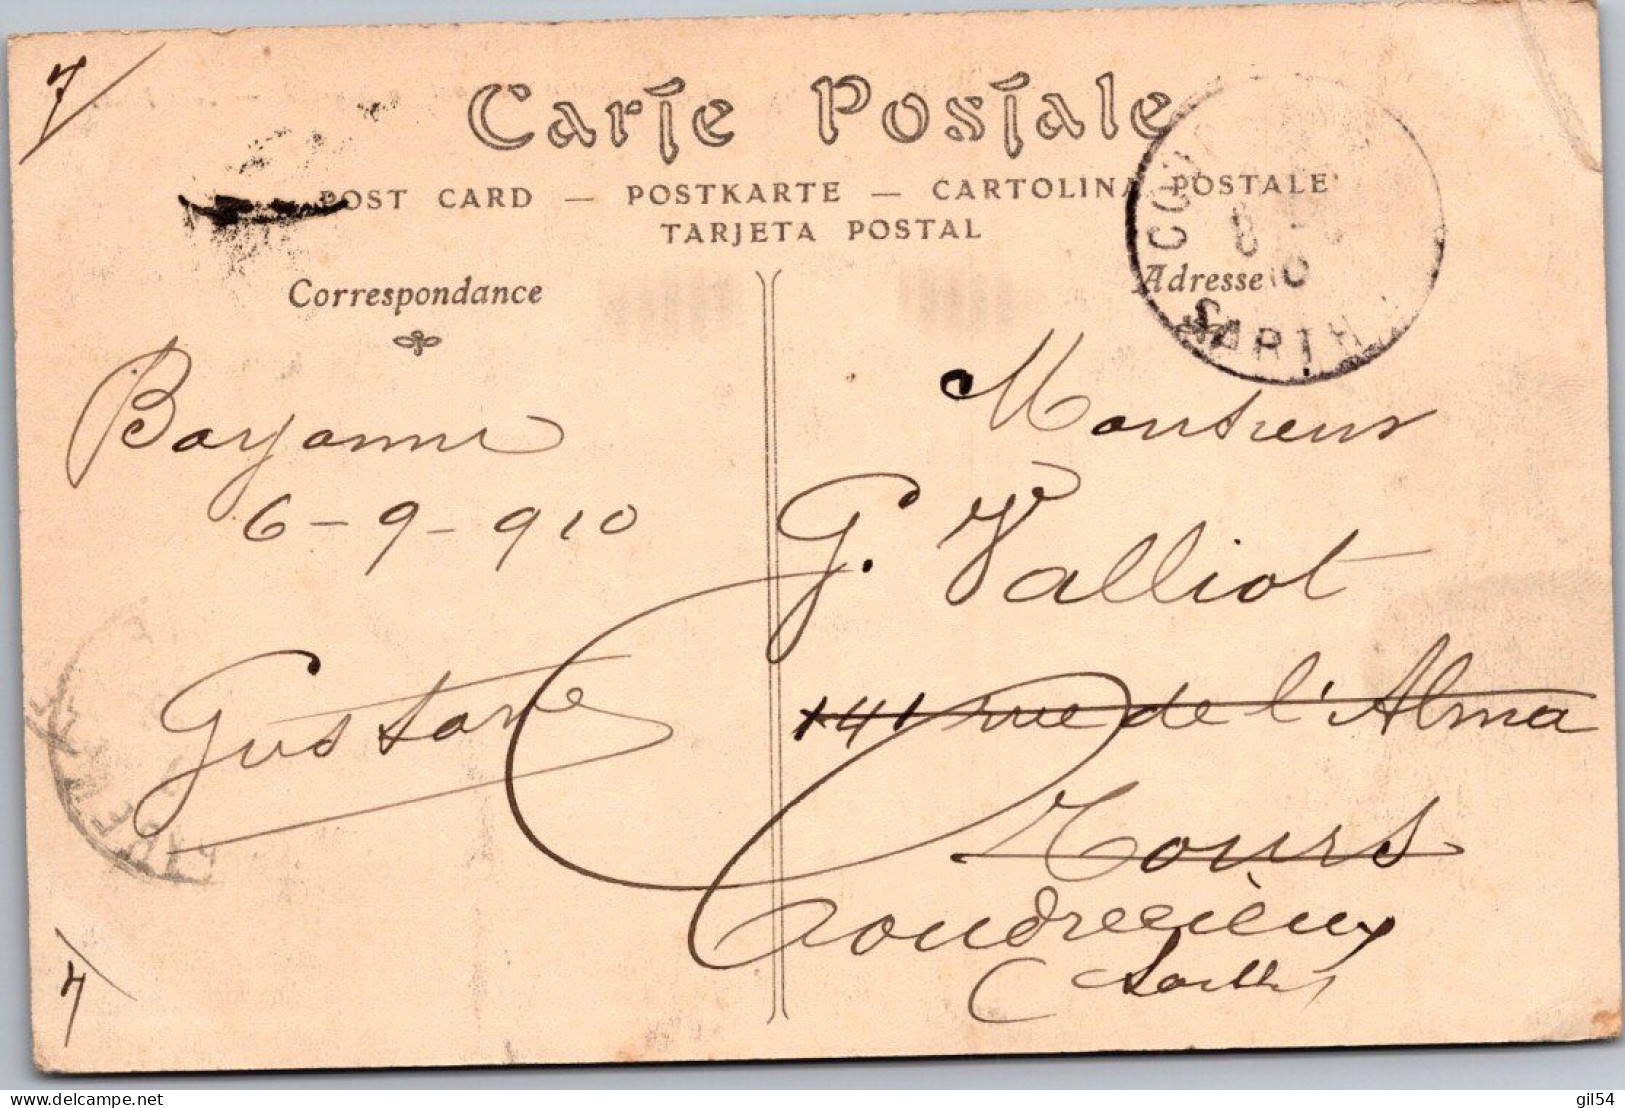 7
Carte Postale
POST CARD — POSTKARTE — CARTOLINA POSTALE
TARJETA POSTAL
Correspondance
Adresse
SARTH
Bayonne
6-9-910
Gustave
Monsieur
G. Valliot
141 rue de l'Alma
Tours
Coudrecieux
(Sarthe)
4
www.delcampe.net
gil54